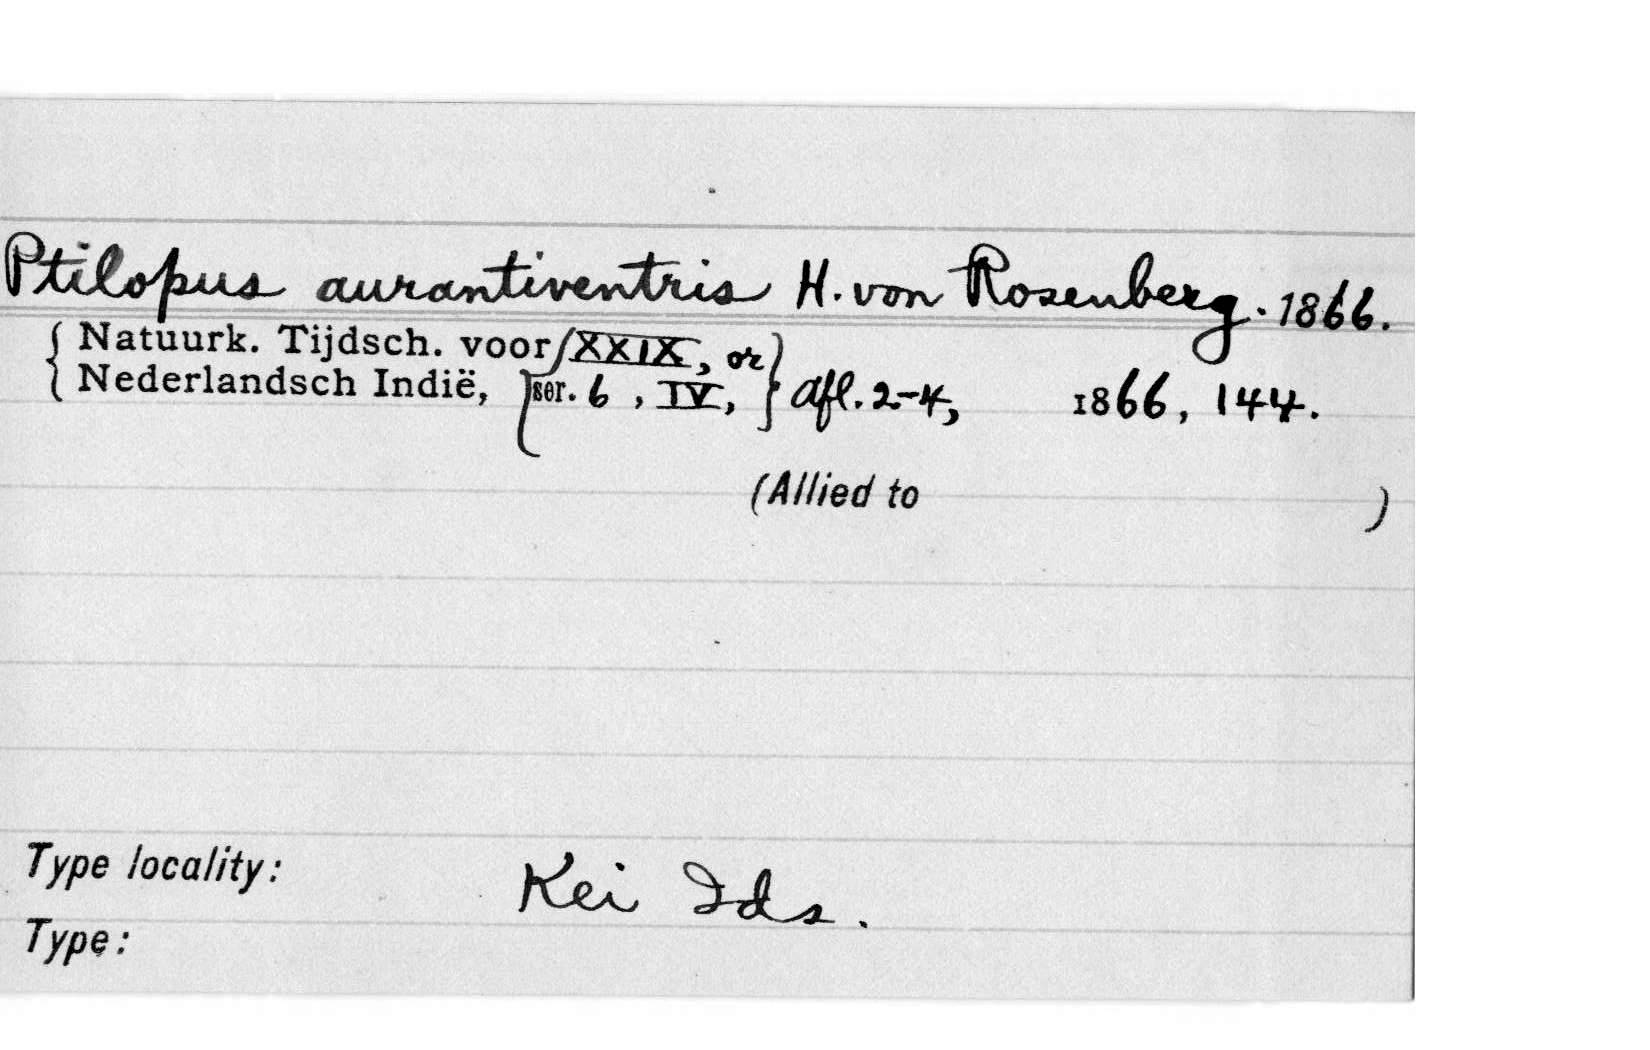 Ptilopus aurantiventris H. von Rosenberg. 1866.
{ Natuurk. Tijdsch. voor { XXIX, or }
{ Nederlandsch Indië, { ser. 6, IV, } afl. 2-4, 1866, 144.
(Allied to )
Type locality: Kei Ids.
Type: